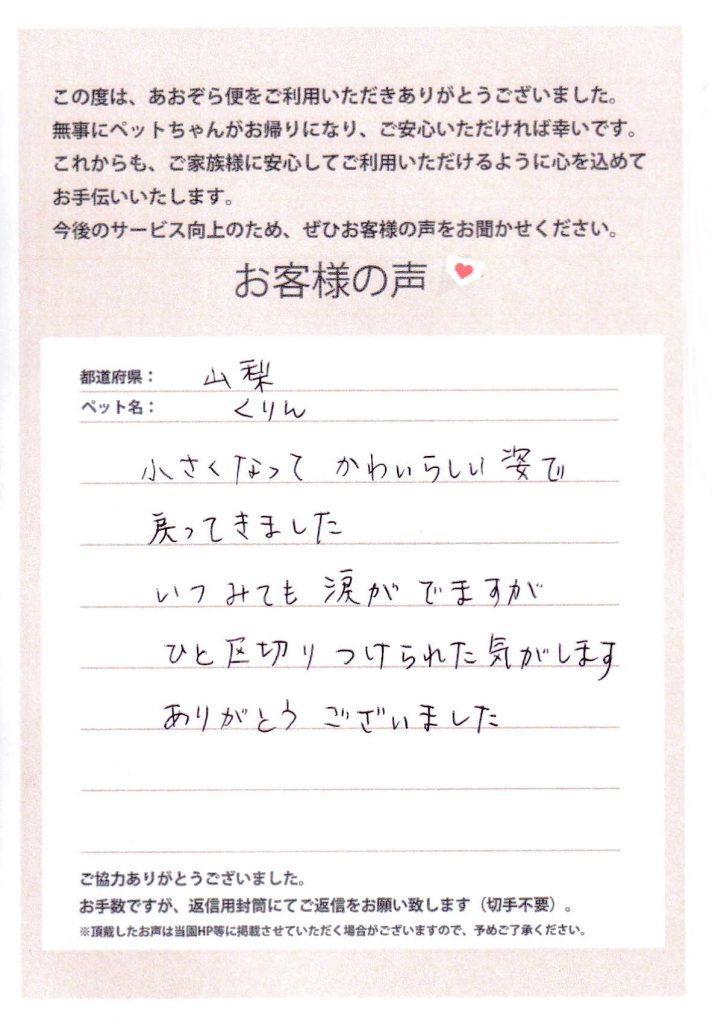 この度は、あおぞら便をご利用いただきありがとうございました。
無事にペットちゃんがお帰りになり、ご安心いただければ幸いです。
これからも、ご家族様に安心してご利用いただけるように心を込めて
お手伝いいたします。
今後のサービス向上のため、ぜひお客様の声をお聞かせください。
お客様の声
都道府県： 山梨
ペット名： くりん
小さくなって かわいらしい 姿で
戻ってきました
いつみても 涙が でますが
ひと区切り つけられた気がします
ありがとう ございました
ご協力ありがとうございました。
お手数ですが、返信用封筒にてご返信をお願い致します（切手不要）。
※頂戴したお声は当園HP等に掲載させていただく場合がございますので、予めご了承ください。